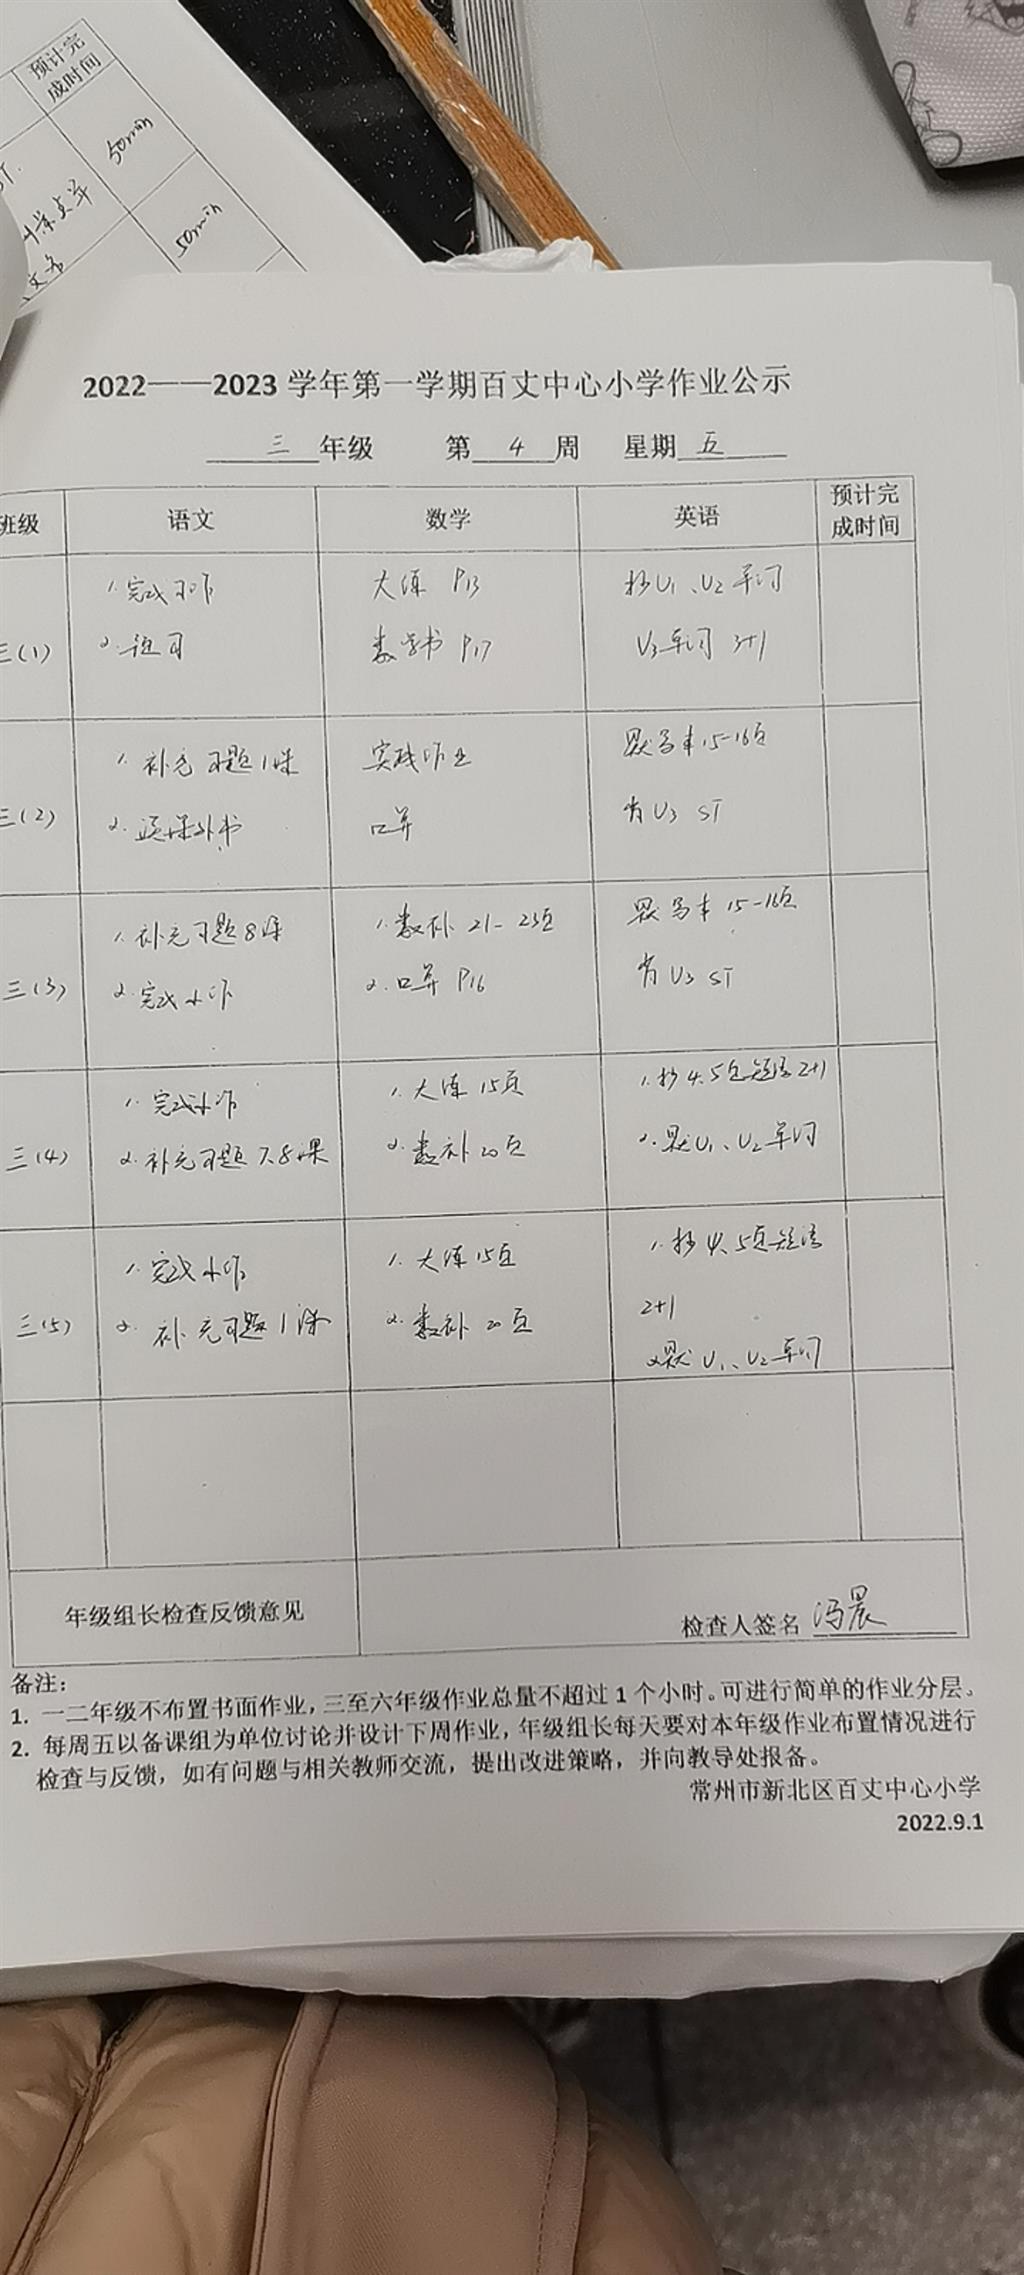 预计完
成时间
50min
50min
2022——2023 学年第一学期百丈中心小学作业公示
三 年级 第 4 周 星期 五
班级 语文 数学 英语 预计完成时间
三(1)
1.完成习作
2.练习
大练 P13
数学书 P17
抄U1、U2 单词
U3单词 3+1
三(2)
1.补充习题1课
2.读课外书
实践作业
口算
默写本15-16页
背U3 ST
三(3)
1.补充习题8课
2.完成小作
1.数补 21-23页
2.口算 P16
默写本 15-16页
背 U3 ST
三(4)
1.完成小作
2.补充习题 7.8课
1.大练 15页
2.数补 20页
1.抄4.5页短语2+1
2.默U1、U2 单词
三(5)
1.完成小作
2.补充习题 1课
1.大练15页
2.数补 20页
1.抄4、5页短语
2+1
2默 U1、U2 单词
年级组长检查反馈意见
检查人签名 冯晨
备注:
1. 一二年级不布置书面作业，三至六年级作业总量不超过 1 个小时。可进行简单的作业分层。
2. 每周五以备课组为单位讨论并设计下周作业，年级组长每天要对本年级作业布置情况进行
检查与反馈，如有问题与相关教师交流，提出改进策略，并向教导处报备。
常州市新北区百丈中心小学
2022.9.1